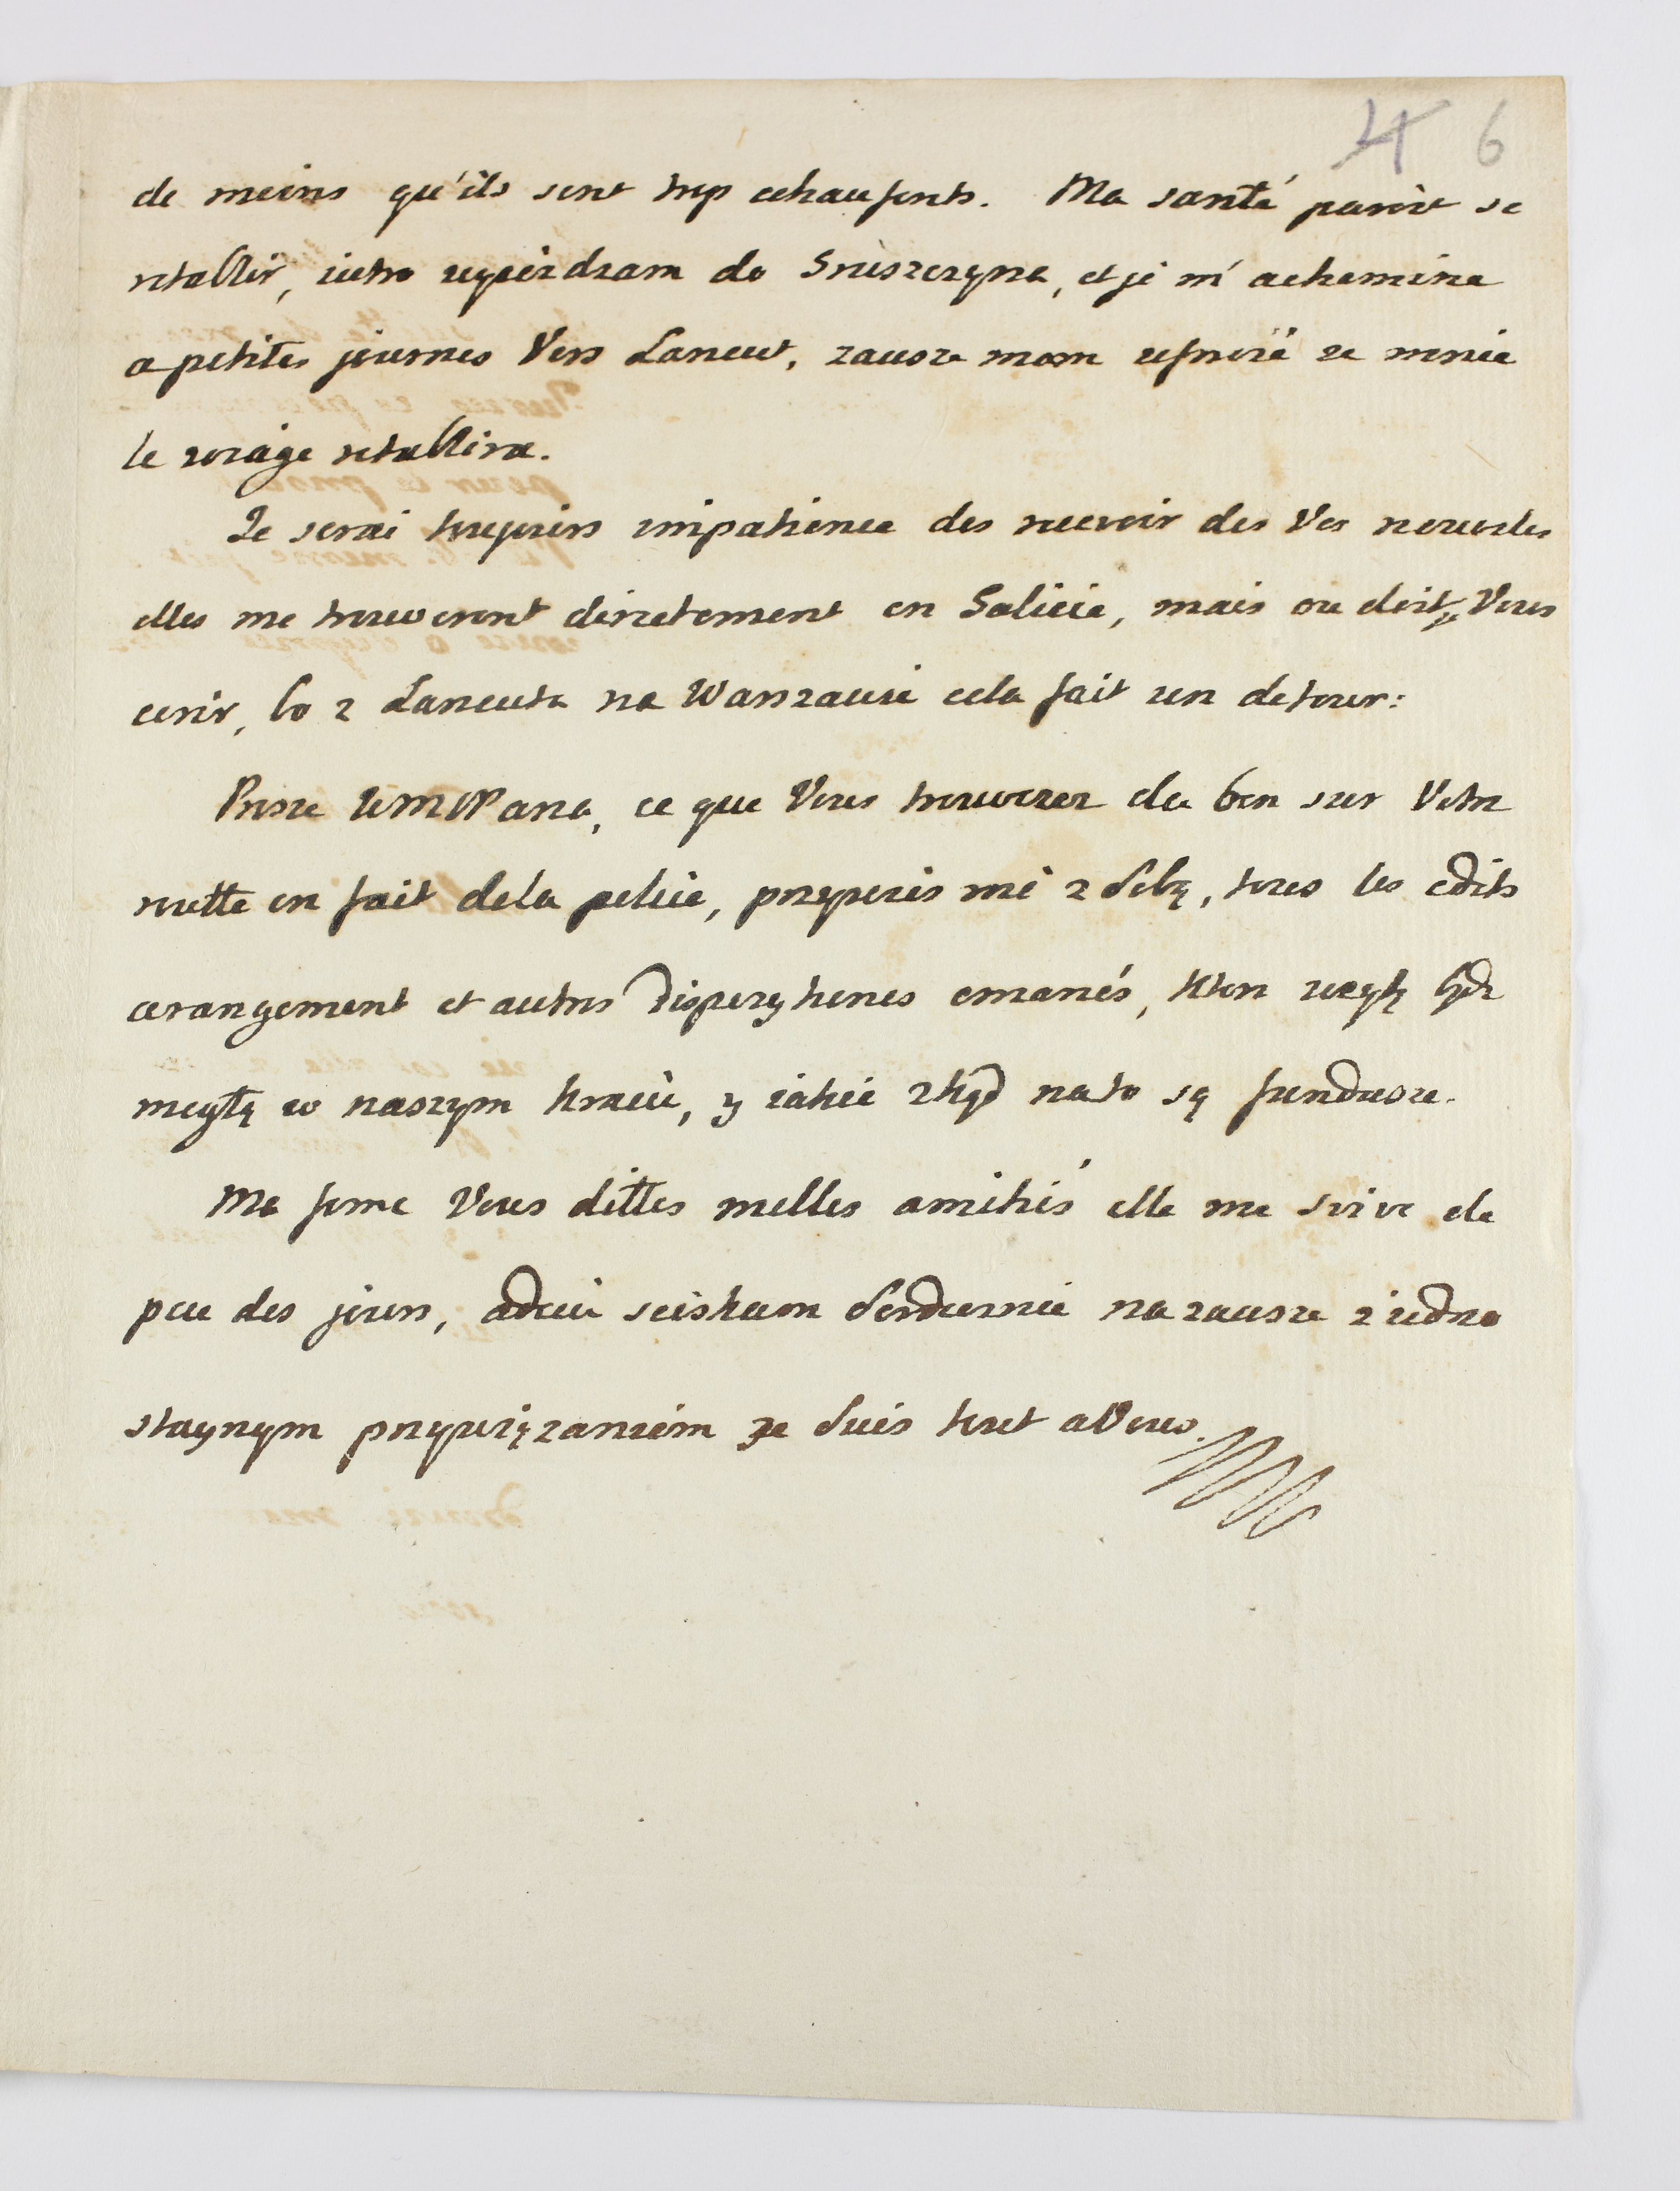 4 6
de moins qu'ils sont trop echaufents. Ma santé paroit se
retablir, iutro wyieżdzam do Sniszczyna, et je m'achemine
a petites journes Vers Lancut, zausze mam ufnosć ze mnie
le voiage retablira.
Je serai toujours impatience des recevoir des Vos nouvelles
elles me trouveront directement en Galicie, mais ou doit je Vous
ecrir, bo z Lancuta na Warszawe cela fait un detour:
Prosze WMWPana, ce que Vous trouverez de bon sur Votre
routte en fait dela police, przywies mi z sobą, tous les edits
arangement et autres dispozytiones emanés, ktore użyte bydz
mogłą w naszym kraiu, y iakie zkąd na to są fundusze.
Ma feme Vous dittes milles amitiés elle me suive de
peu des jours, adieu sciskam serdecznie na zausze z iedno
staynym przywiązaniem je suis tout a Vous.